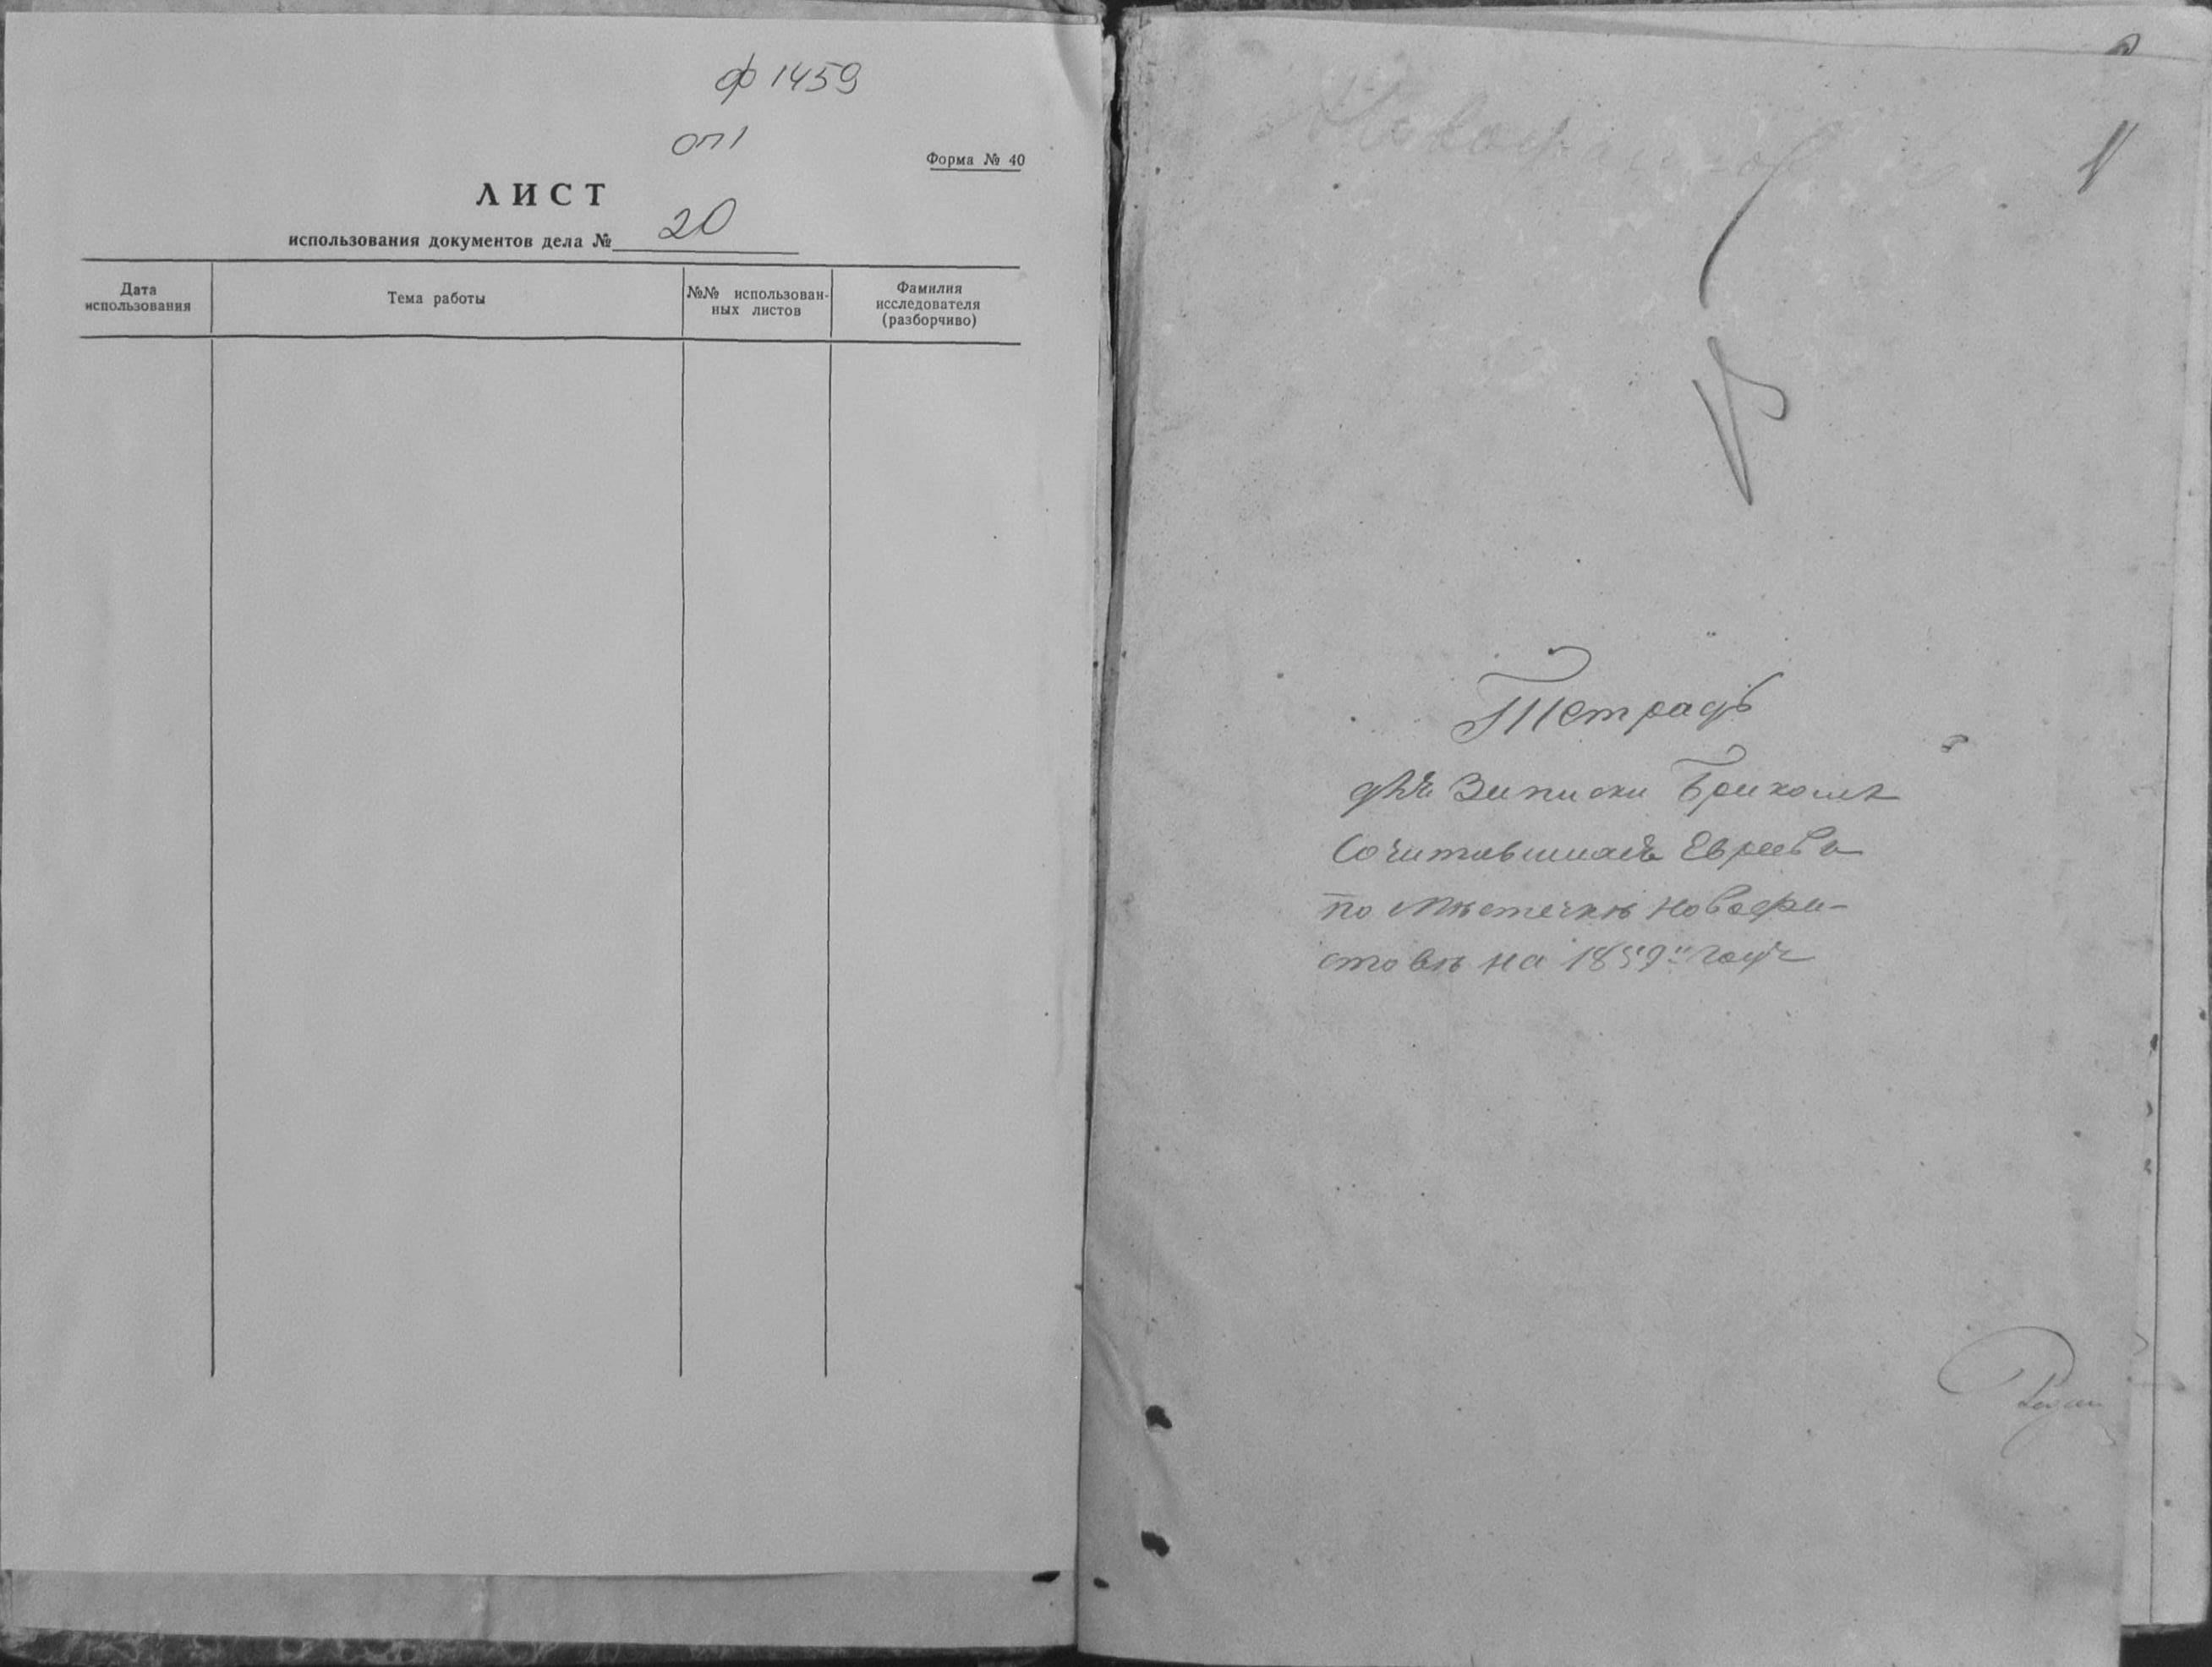 ф 1459
оп 1
Форма № 40
ЛИСТ
использования документов дела № 20
Дата
использования
Тема работы
№№ использован-
ных листов
Фамилия
исследователя
(разборчиво)
1
Тетрадь
для Записки Бракомъ
Сочитавшихся Евреевъ
по Мѣстечкѣ Новофа-
стовѣ на 1859 годъ